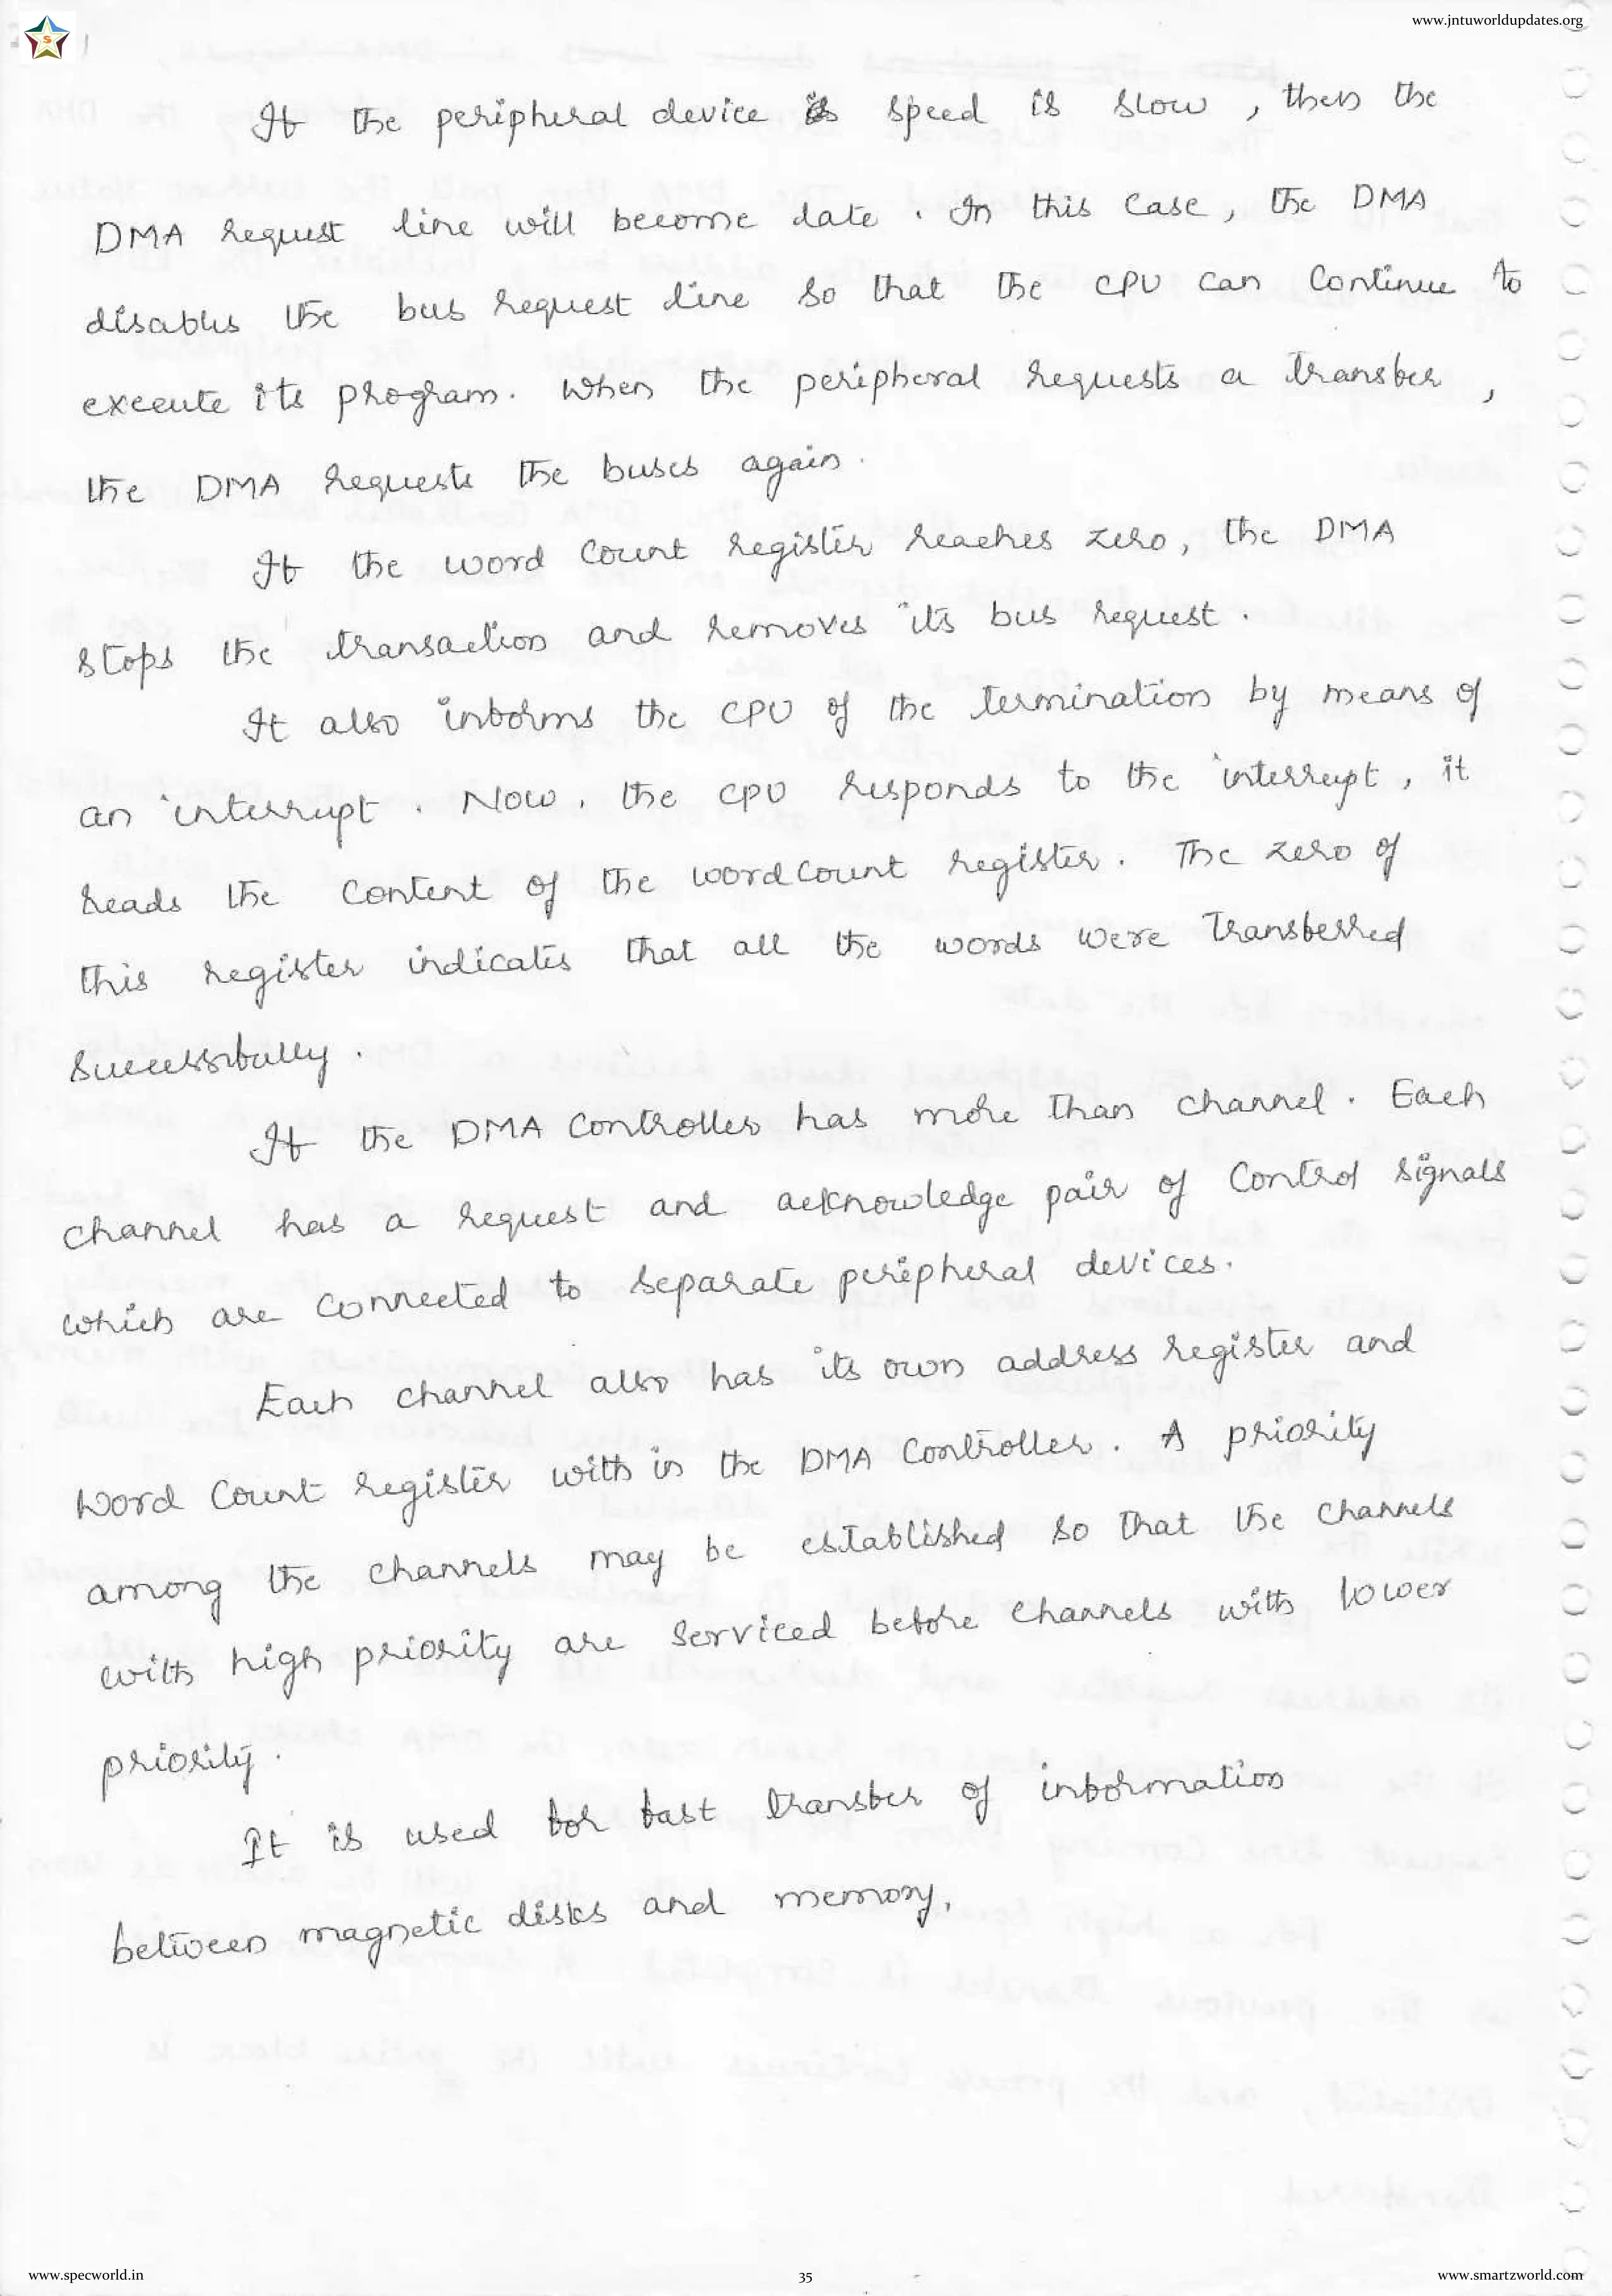 www.jntuworldupdates.org
S
If the peripheral device is speed is slow, then the
DMA request line will become date. In this case, the DMA
disables the bus request line so that the CPU can continue to
execute its program. When the peripheral requests a transfer,
the DMA requests the buses again.
If the word count register reaches zero, the DMA
stops the transaction and removes its bus request.
It also informs the CPU of the termination by means of
an interrupt. Now, the CPU responds to the interrupt, it
reads the content of the wordcount register. The zero of
this register indicates that all the words were transferred
successfully.
If the DMA controller has more than channel. Each
channel has a request and acknowledge pair of control signals
which are connected to separate peripheral devices.
Each channel also has its own address register and
word count register with in the DMA controller. A priority
among the channels may be established so that the channels
with high priority are serviced before channels with lower
priority.
It is used for fast transfer of information
between magnetic disks and memory.
www.specworld.in
35
www.smartzworld.com